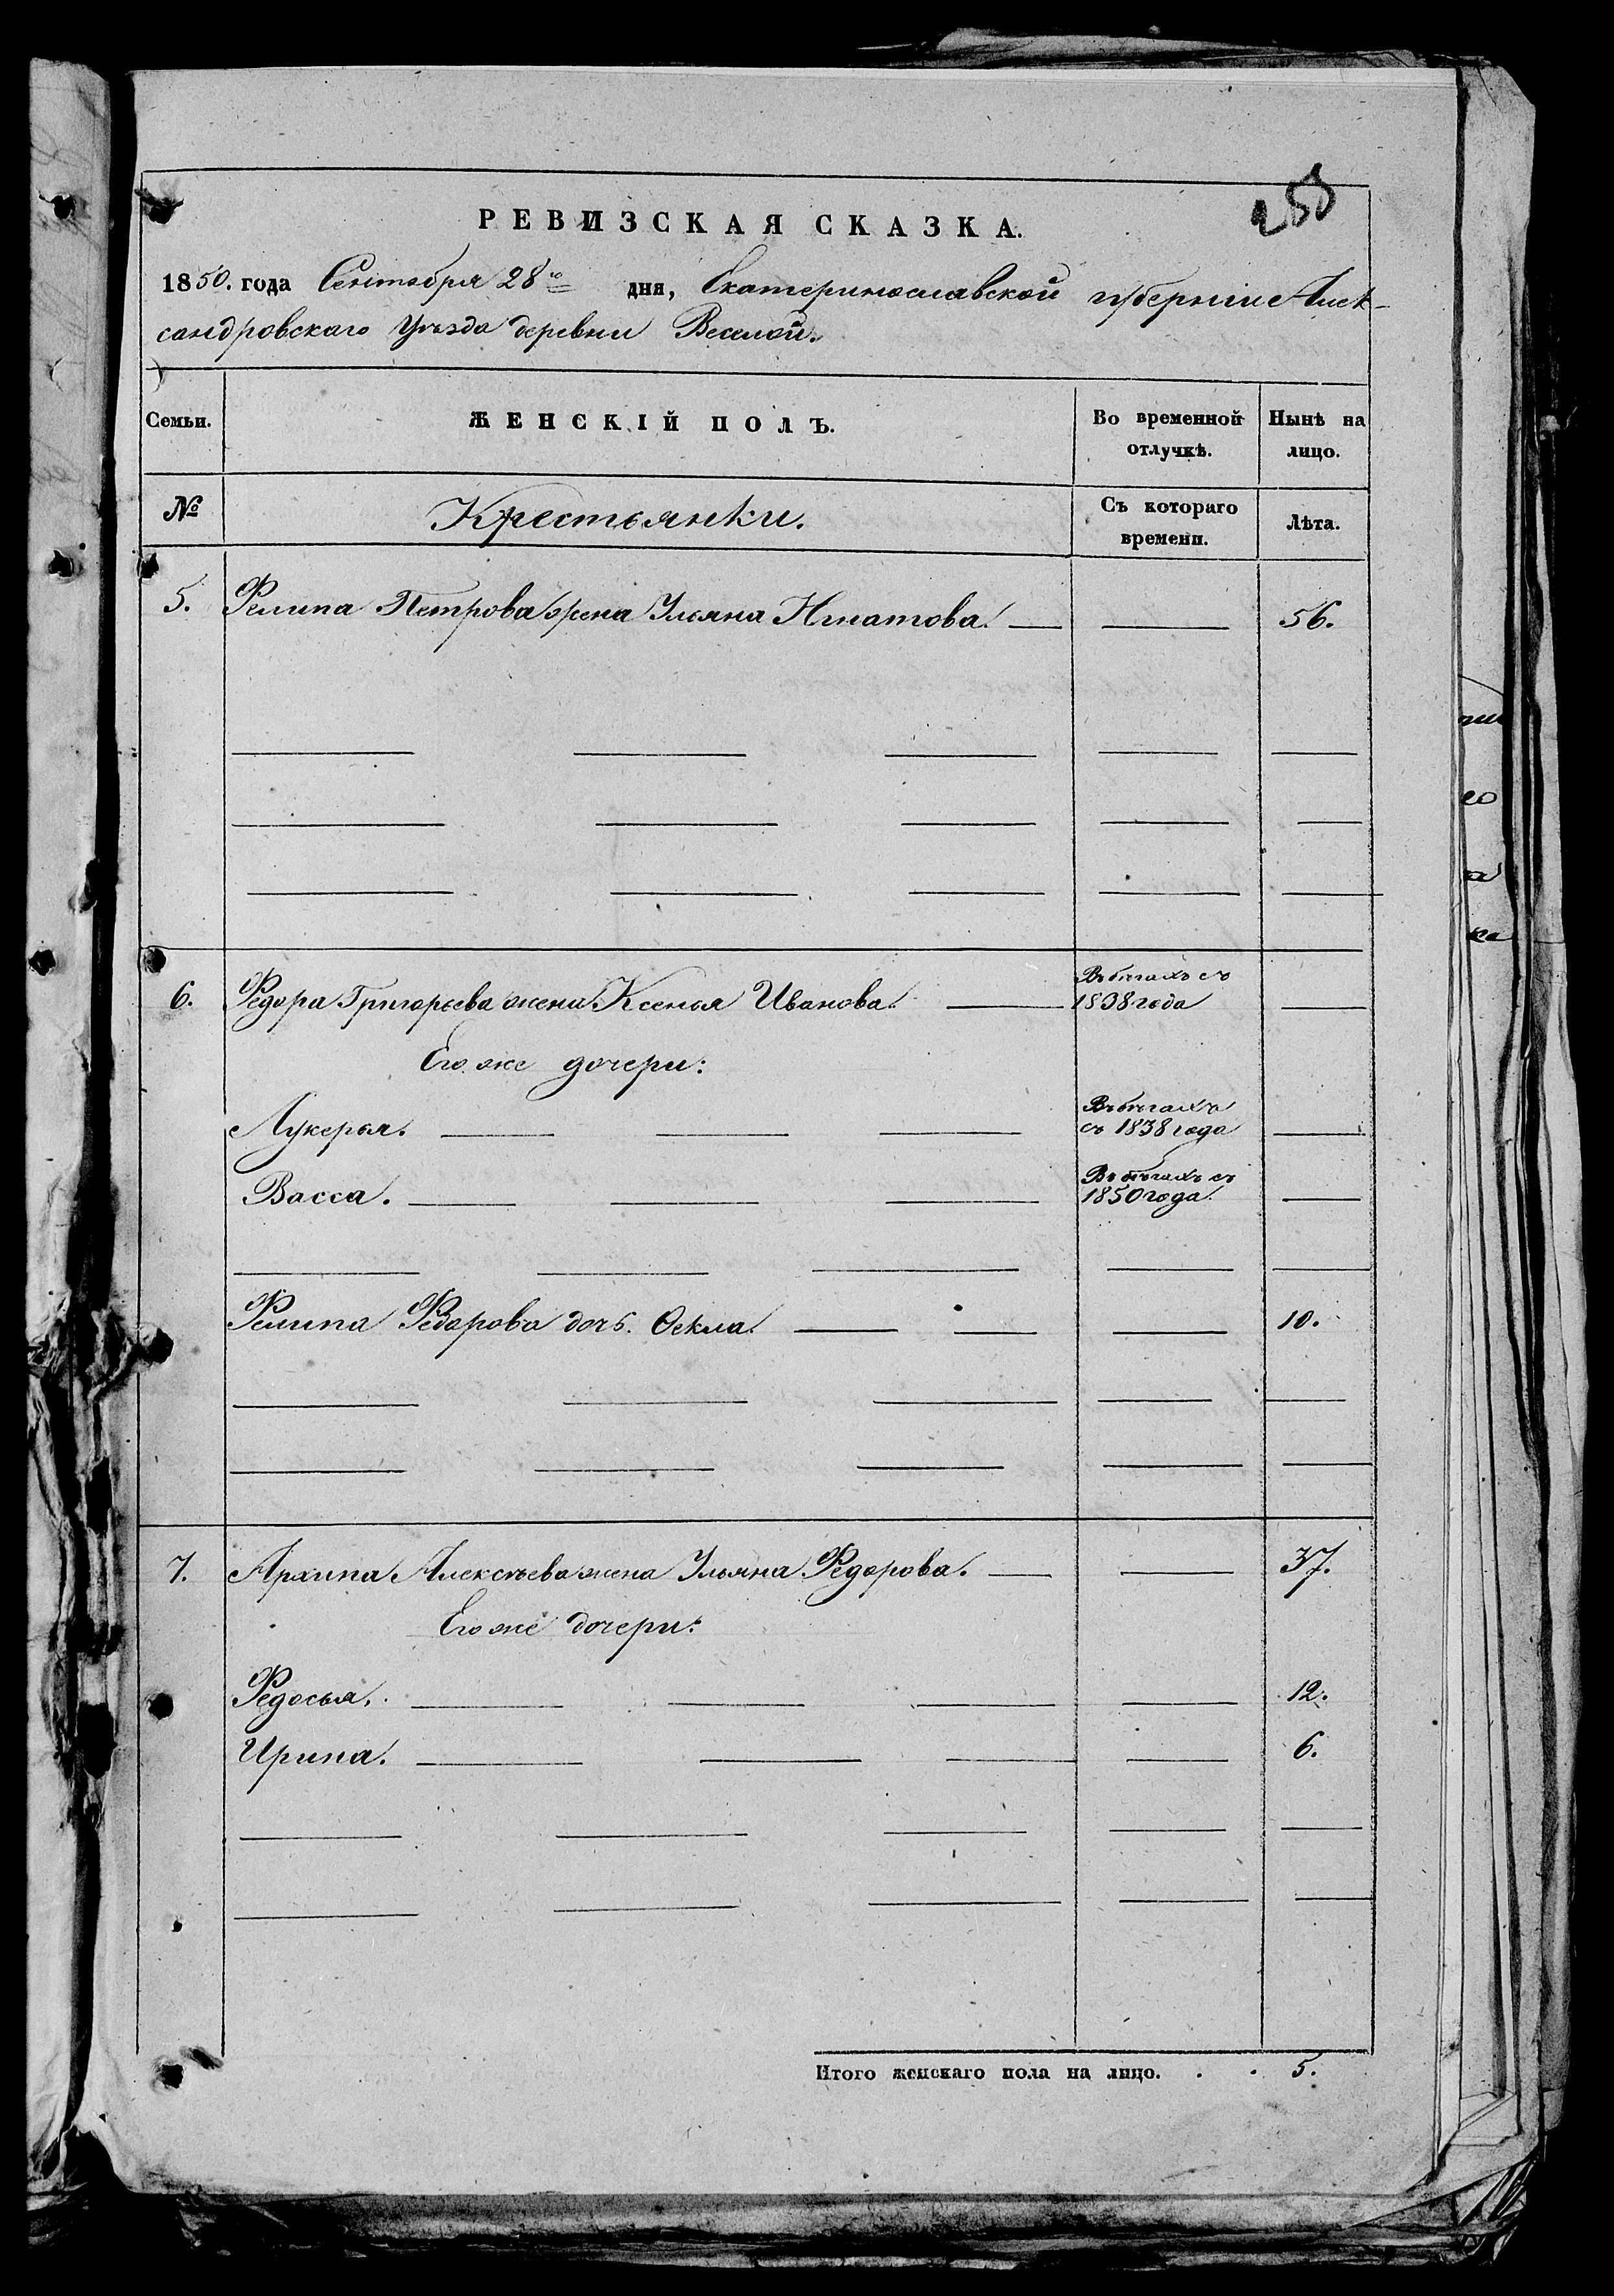 255
РЕВИЗСКАЯ СКАЗКА.
1850. года Сентября 28го дня, Екатеринославской губерніи Алек-
сандровскаго Уѣзда деревни Веселой.
Семьи. ЖЕНСКІЙ ПОЛЪ. Во временной отлучкѣ. Нынѣ на лицо.
№ Крестьянки. Съ котораго времени. Лѣта.
5. Филипа Петрова жена Ульяна Игнатова. 56.
6. Федора Григорьева жена Ксенья Иванова. Въ бѣгахъ съ 1838 года
Его же дочери:
Лукерья. Въ бѣгахъ съ 1838 года
Васса. Въ бѣгахъ съ 1850 года.
Филипа Федорова дочь. Ѳекла. 10.
7. Архипа Алексѣева жена Ульяна Федорова. 37.
Его же дочери:
Федосья. 12.
Ирина. 6.
Итого женскаго пола на лицо. . . 5.